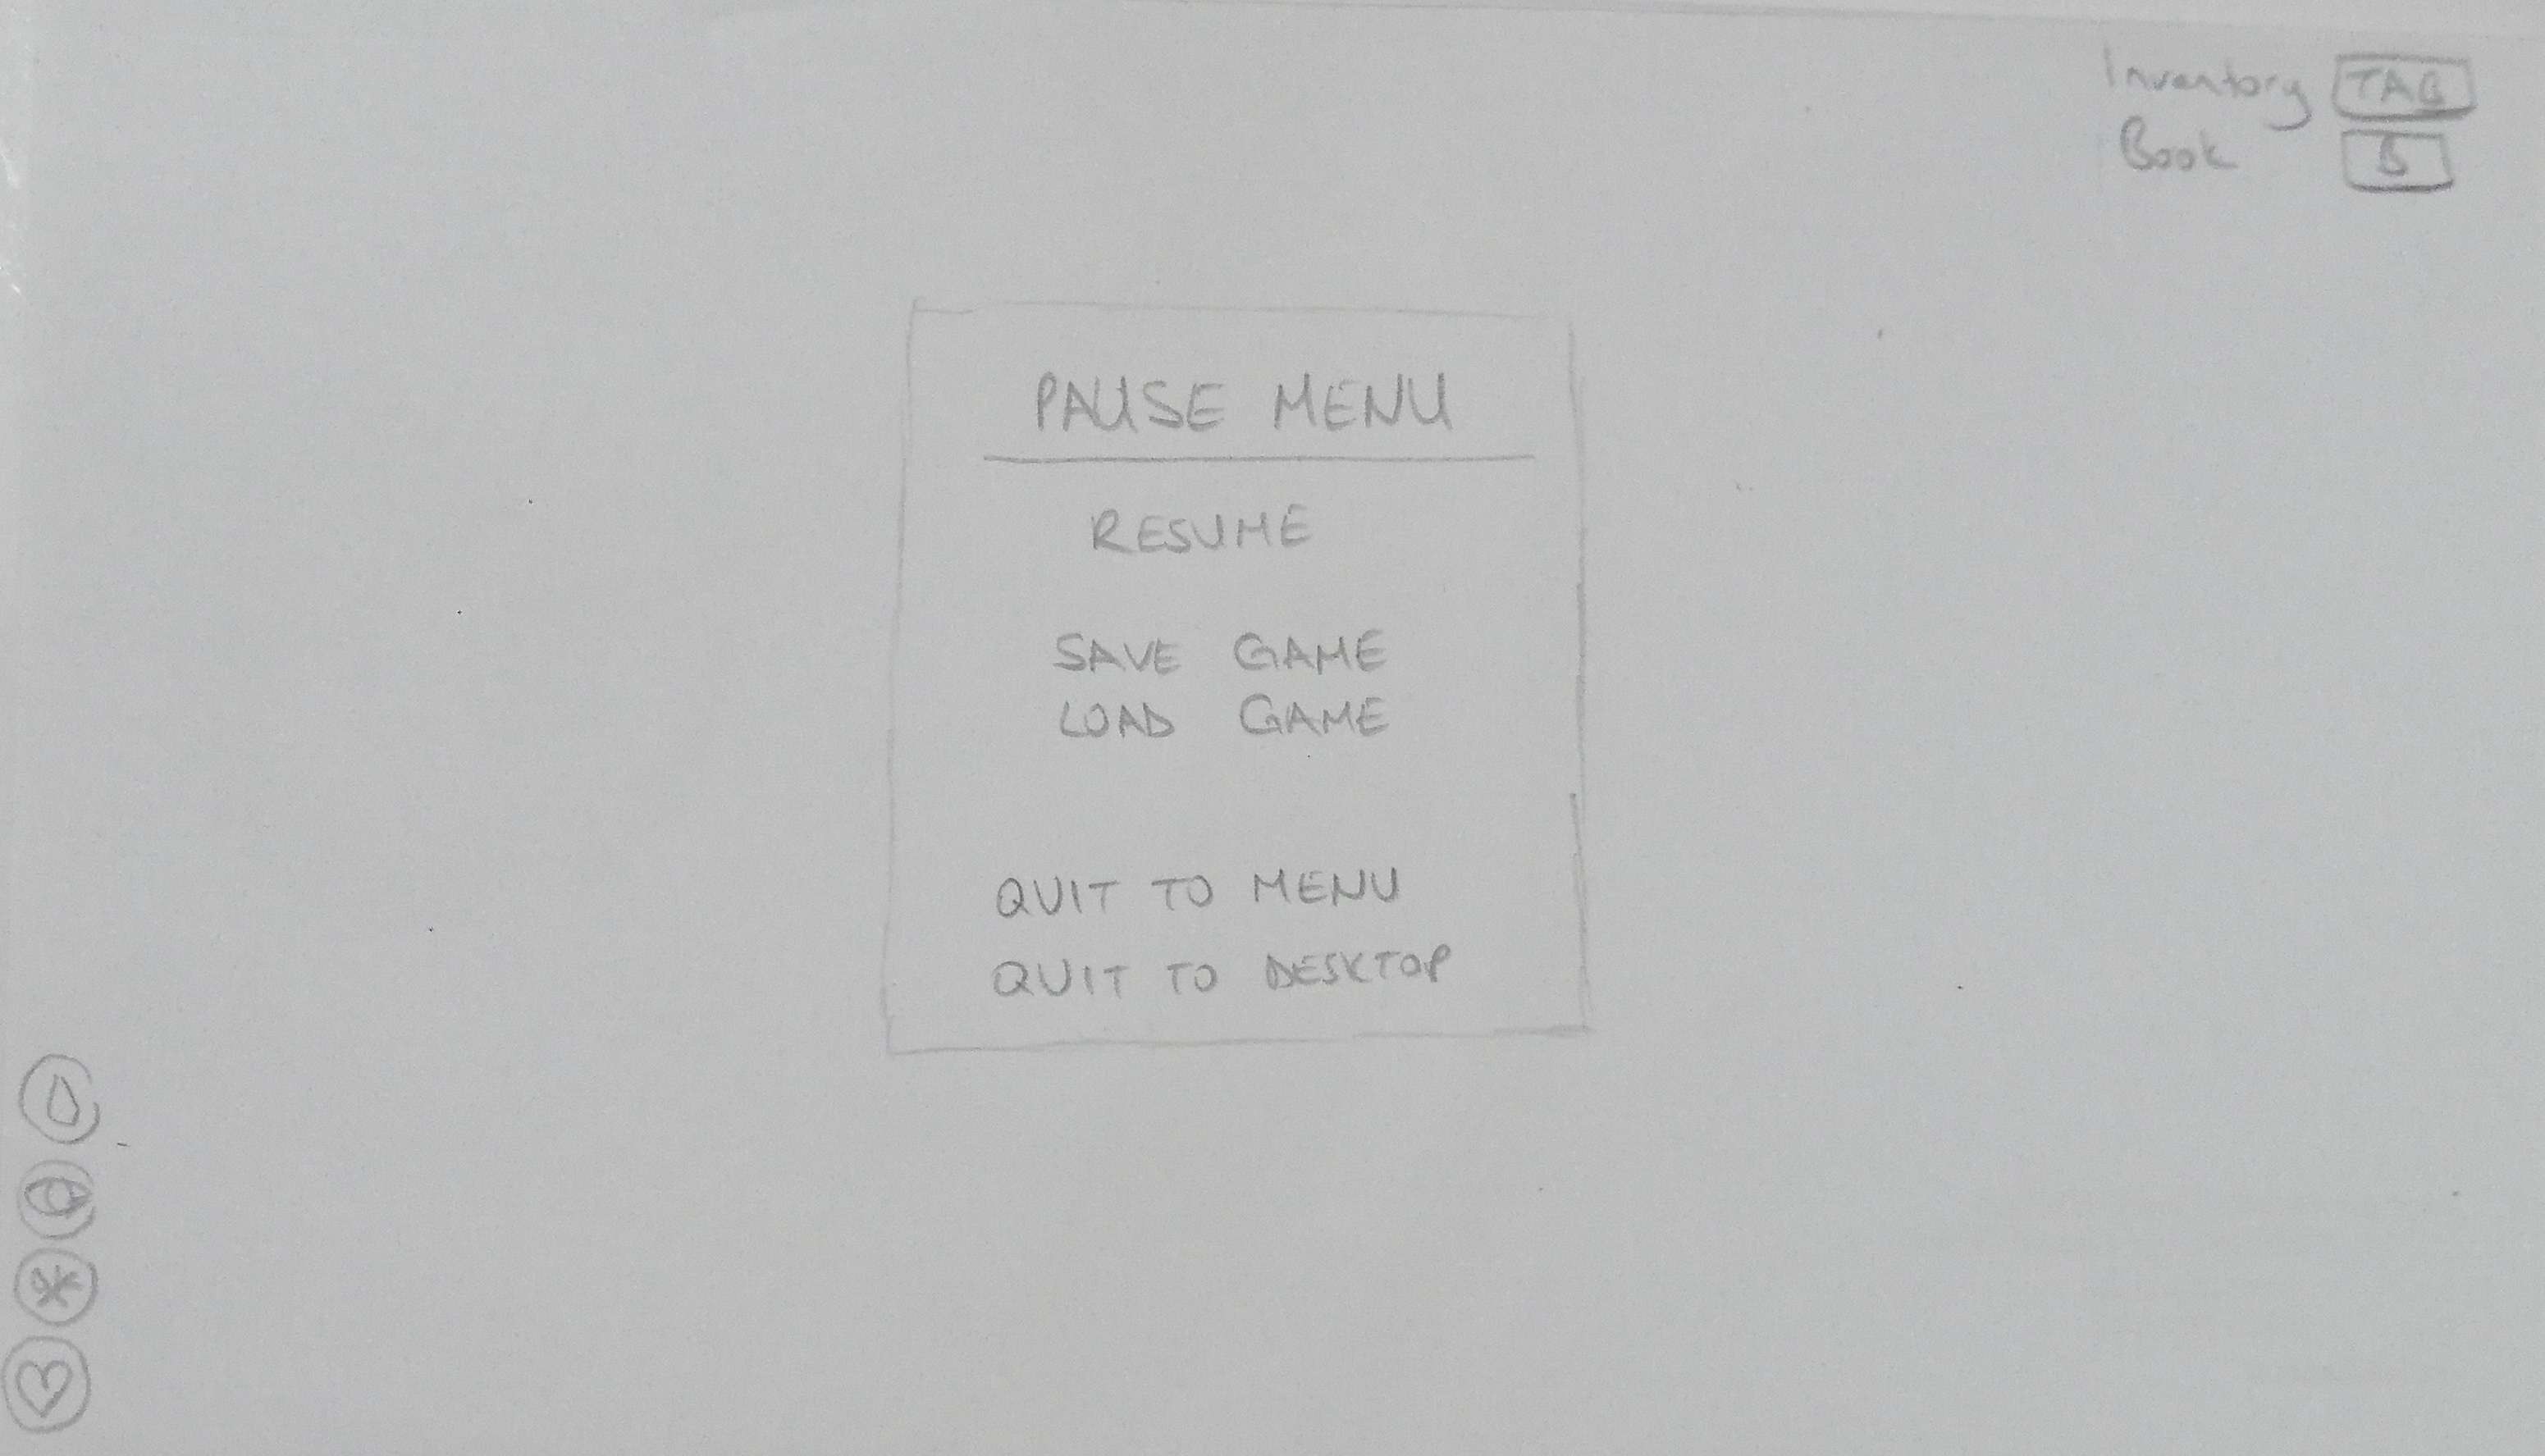 Inventory TAB
Book B
PAUSE MENU
RESUME
SAVE GAME
LOAD GAME
QUIT TO MENU
QUIT TO DESKTOP